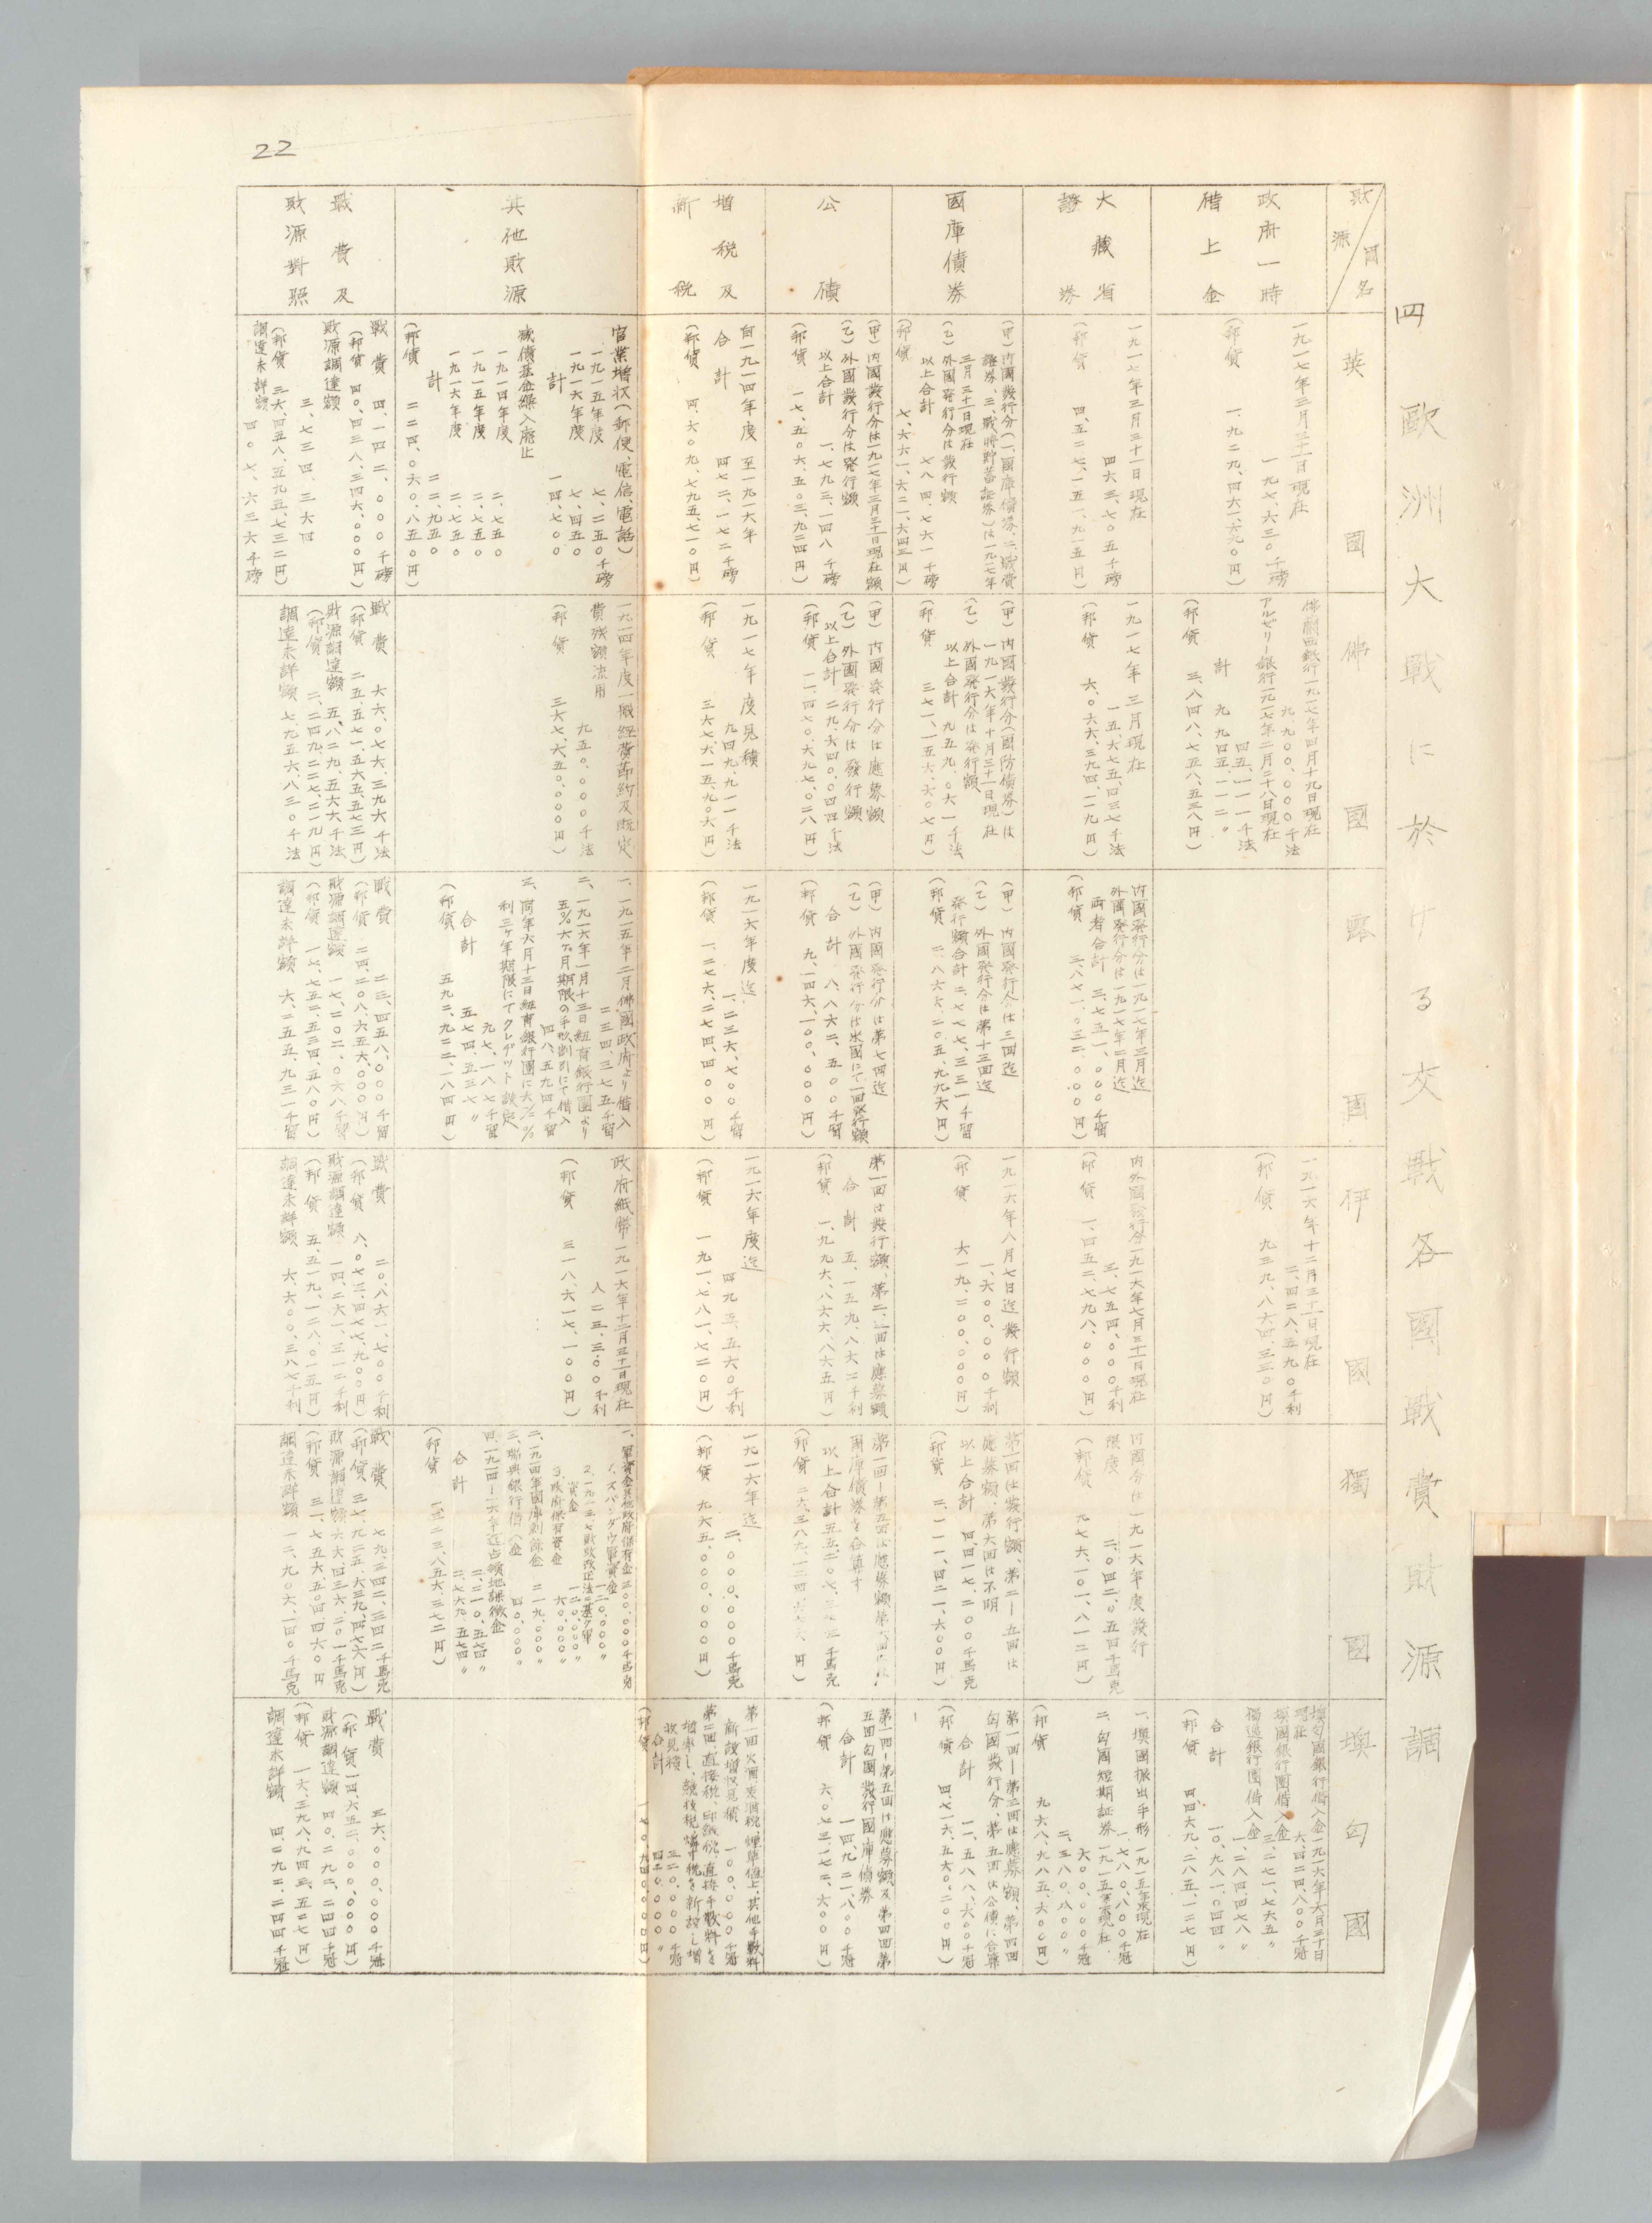 22
四 歐洲大戰に於ける交戰各國戰費財源調
財源 國名
英國
佛國
露國
伊國
獨國
墺匈國
政府一時借上金
一九一七年三月三十一日現在
一九七、六三〇千磅
(邦貨 一、九二九、四六一、六九〇円)
佛蘭西銀行一九一七年四月十九日現在
九、九〇〇、〇〇〇千法
アルゼリー銀行一九一七年二月二十八日現在
四五、一一一千法
計 九、九四五、一一二〃
(邦貨 三、八四八、七五八、五三八円)
一九一六年十二月三十一日現在
二、四二八、五九〇千利
(邦貨 九三九、八六四、三三〇円)
墺匈國銀行借入金一九一六年六月三十日現在
六、四二四、八〇〇千冠
墺國銀行團借入金
三、二七一、七六五〃
獨逸銀行團借入金
一、二八四、四七八〃
合計 一〇、九八一、〇四四〃
(邦貨 四四六九、二八五、一二七円)
大藏省證券
一九一七年三月三十一日現在
四六三、七〇五千磅
(邦貨 四、五二七、一五一、九一五円)
一九一七年三月現在
一五、六七五、四三七千法
(邦貨 六、〇六六、三九四、一一九円)
内國發行分は一九一七年三月迄
外國發行分は一九一七年二月迄
両者合計 三、七五一、〇〇〇千留
(邦貨 三、八七一、〇三二、〇〇〇円)
内外國發行分一九一六年七月三十一日現在
三、七五四、〇〇〇千利
(邦貨 一、四五二、七九八、〇〇〇円)
内國分は一九一六年度發行限度
二、〇四二、〇五四千馬克
(邦貨 九七六、一〇一、八一二円)
一、墺國振出手形 一九一五年末現在
一、七八〇、八〇〇千冠
二、匈國短期証券 一九一五年末現在
六〇〇、〇〇〇千冠
二、三八〇、八〇〇〃
(邦貨 九六八、九八五、六〇〇円)
國庫債券
(甲)内國發行分(一、國庫債券、二、戰費證券、三、戰時貯蓄証券)は一九一七年三月三十一日現在
(乙)外國發行分は發行額
以上合計 七八四、七六一千磅
(邦貨 七、六六一、六二一、六四三円)
(甲)内國發行分(國防債券)は一九一六年十月三十一日現在
(乙)外國發行分は發行額
以上合計 九五九、〇六一千法
(邦貨 三七一、一五六、六〇七円)
(甲)内國發行分は三回迄
(乙)外國發行分は第十三回迄
發行額合計 二、七七七、三三一千留
(邦貨 二、八六六、二〇五、九九六円)
一九一六年八月七日迄發行額
一、六〇〇、〇〇〇千利
(邦貨 六一九、二〇〇、〇〇〇円)
第一回は發行額、第二ー五回は應募額、第六回は不明
以上合計 四、四一七、二〇〇千馬克
(邦貨 二、一一一、四二一、六〇〇円)
第一回ー第三回は應募額、第四回匈國發行分、第五回は公債に合算
合計 一一、五八八、六〇〇千冠
(邦貨 四、七一六、五六〇、二〇〇円)
公債
(甲)内國發行分は一九一七年三月三十一日現在額
(乙)外國發行分は発行額
以上合計 一、七九三、一四八千磅
(邦貨 一七、五〇六、五〇三、九二四円)
(甲)内國発行分は應募額
(乙)外國発行分は發行額
以上合計 二九、六四〇、〇四四千法
(邦貨 一一、四七〇、六九七、〇二八円)
(甲)内國発行分は第七回迄
(乙)外國発行分は米國にて一回発行額
合計 八、八六二、五〇〇千留
(邦貨 九、一四六、一〇〇、〇〇〇円)
第一回は發行額、第二、三回は應募額
合計 五、一五九、八六二千利
(邦貨 一、九九六、八六六、八六五円)
第一回ー第五回は應募額第六回は
國庫債券を合算す
以上合計五五、二〇七、三七三千馬克
第一回ー第五回は應募額及第四回第五回匈國發行國庫債券
合計 一四、九二一、八〇〇千冠
(邦貨 六、〇七三、一七二、六〇〇円)
增税及新税
自一九一四年度 至一九一六年
合計 四七二、一七二千磅
(邦貨 四、六〇九、七九五、七一〇円)
一九一七年度見積
九四九、九一一千法
(邦貨 三六七、六一五、九〇六円)
一九一六年度迄
一、二三六、七〇〇千留
(邦貨 一、二七六、二七四、四〇〇円)
一九一六年度迄
四九五、五六〇千利
(邦貨 一九一、七八一、七二〇円)
一九一六年迄
二、〇〇〇、〇〇〇千馬克
(邦貨 九六五、〇〇〇、〇〇〇円)
新設增収見積 一〇〇、〇〇〇千冠
收見積 三二〇、〇〇〇千冠
合計 四二〇、〇〇〇〃
(邦貨 一七〇、九四〇、〇〇〇円)
其他財源
官業增収(郵便、電信、電話)
一九一五年度 七、二五〇千磅
一九一六年度 七、四五〇
計 一四、七〇〇
減債基金繰入廢止
一九一四年度 二、七五〇
一九一五年度 二、七五〇
一九一六年度 二、七五〇
計 二二、九五〇
(邦貨 二二四、〇六〇、八五〇円)
一九一四年度一般經費節約及既定費残額流用
九五〇、〇〇〇千法
(邦貨 三六七、六五〇、〇〇〇円)
一、一九一五年二月佛國政府より借入
二三四、三七五千留
二、一九一六年一月十三日紐育銀行團より五%六ヶ月期限の手形割引にて借入
四八、五九四千留
三、同年六月十三日紐育銀行團に六½%利三ヶ年期限にてクレヂツト設定
九七、一八七千留
合計 五七四、五三七〃
(邦貨 五九二、九二二、一八四円)
政府紙幣一九一六年十二月三十一日現在
八二三、三〇〇千利
(邦貨 三一八、六一七、一〇〇円)
一、軍資金其他政府保有金三〇〇、〇〇〇千馬克
1. スパンダウ軍資金 一二〇、〇〇〇〃
2. 一九一三、七財政改正法ニ基ク軍資金 一二〇、〇〇〇〃
3. 政府保有資金 六〇、〇〇〇〃
二、一九一四年國庫剩餘金 二一九、〇〇〇〃
三、瑞典銀行借入金 四〇、〇〇〇〃
四、一九一四ー一六年迄占領地課徴金 二、二一〇、五七四〃
合計 二、七六九、五七四〃
(邦貨 一、三二三、八五六、三七二円)
戰費及財源對照
戰費 四、一四二、〇〇〇千磅
(邦貨 四〇、四三八、三四六、〇〇〇円)
財源調達額
三、七三四、三六四
(邦貨 三六、四五八、五九五、七三二円)
調達未詳額 四〇七、六三六千磅
戰費 六六、〇七六、三九六千法
(邦貨 二五、五七一、五六五、五七三円)
財源調達額 五八、一二九、五六六千法
(邦貨 二二、四九二、二七二、一九円)
調達未詳額 七、九五六、八三〇千法
戰費 二三、四五八、〇〇〇千留
(邦貨 二四、二〇八、六五六、〇〇〇円)
財源調達額 一七、二〇二、〇六八千留
(邦貨 一七、七五二、五三四、五八〇円)
調達未詳額 六、二五五、九三一千留
戰費 二〇、八六一、七〇〇千利
(邦貨 八、〇七三、四七七、九〇〇円)
財源調達額 一四、二六一、三一二千利
(邦貨 五、五一九、一二八、〇一五円)
調達未詳額 六、六〇〇、三八七千利
戰費 七九、三四二、三四二千馬克
(邦貨 三七、九二五、六三九、四七六円)
財源調達額六六、四三六、二〇一千馬克
(邦貨 三一、七五六、五〇四、四六〇円
調達未詳額 一二、九〇六、一四〇千馬克
戰費 三六、〇〇〇、〇〇〇千冠
(邦貨一四、六五二、〇〇〇、〇〇〇円)
財源調達額 四〇、二九二、二四四千冠
(邦貨 一六、三九八、九四三、五二七円)
調達未詳額 四、二九二、二四四千冠